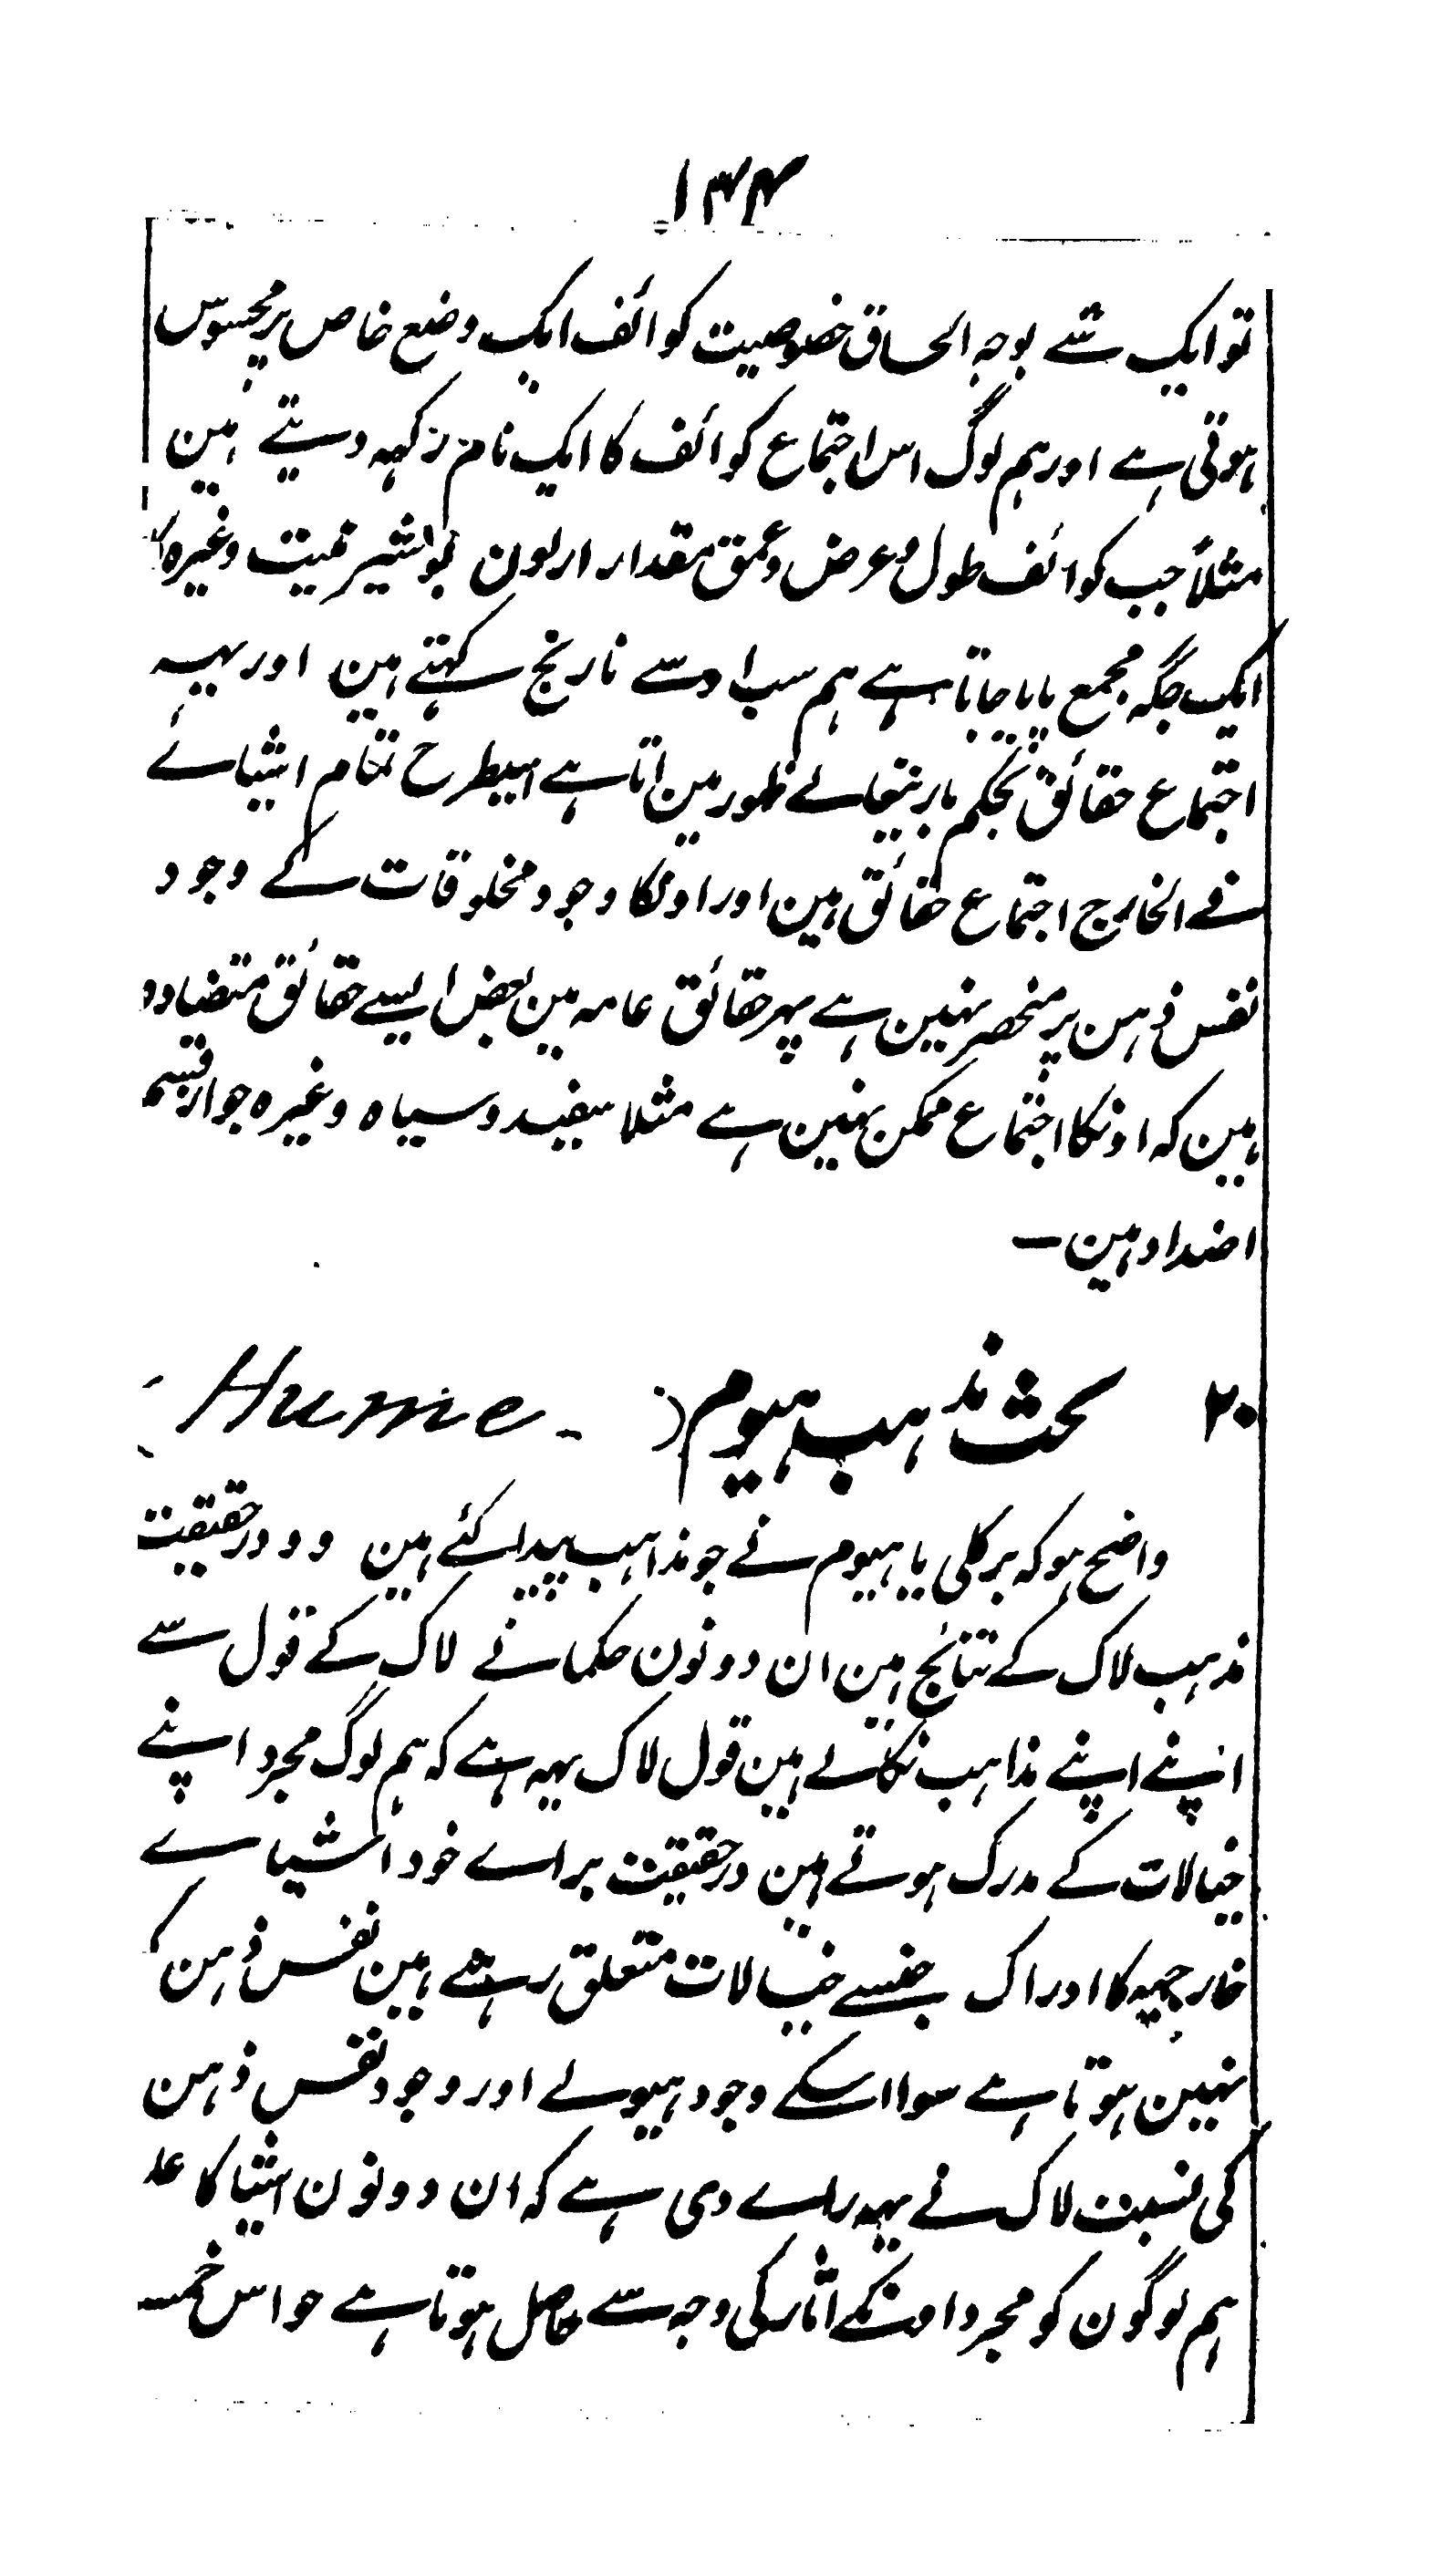 ۱۳۴
تو ایک شے بوجہ الحاق خصوصیت کوائف ایک وضع خاص پر محسوس
ہوتی ہے اور ہم لوگ اس اجتماع کوائف کا ایک نام رکہہ دیتے ہین
مثلاً جب کوائف طول و عرض و عمق مقدار اور لون بو شیرینیت وغیرہ کا
ایک جگہ مجمع پایا جاتا ہے ہم سب اوسے نارنج کہتے ہین اور یہہ
اجتماع حقائق بحکم باریتعالے ظہور مین اتا ہے اسیطرح تمام اشیائے
فے الخارج اجتماع حقائق ہین اور اونکا وجود مخلوقات کے وجود
نفس ذہن پر منحصر نہین ہے پہر حقائق عامہ مین بعض ایسے حقائق متضادہ
ہین کہ اونکا اجتماع ممکن نہین ہے مثلا سفید و سیاہ وغیرہ جو از قسم
اضداد ہین ۔
۲۰ بحث مذہب ہیوم ( Hume - )
واضح ہو کہ برکلی یا ہیوم نے جو مذاہب پیدا کئے ہین وہ درحقیقت
مذہب لاک کے نتائج ہین ان دونون حکما نے لاک کے قول سے
اپنے اپنے مذاہب نکالے ہین قول لاک یہہ ہے کہ ہم لوگ مجرد اپنے
خیالات کے مدرک ہوتے ہین درحقیقت براے خود اشیاے
خارجیہ کا ادراک جنسے خیالات متعلق رہتے ہین نفس ذہن کو
نہین ہوتا ہے سوا اسکے وجود ہیولے اور وجود نفس ذہن
کی نسبت لاک نے یہہ راے دی ہے کہ ان دونون اشیا کا علم
ہم لوگون کو مجرد اونکے اثار کی وجہ سے حاصل ہوتا ہے حواس خمسہ